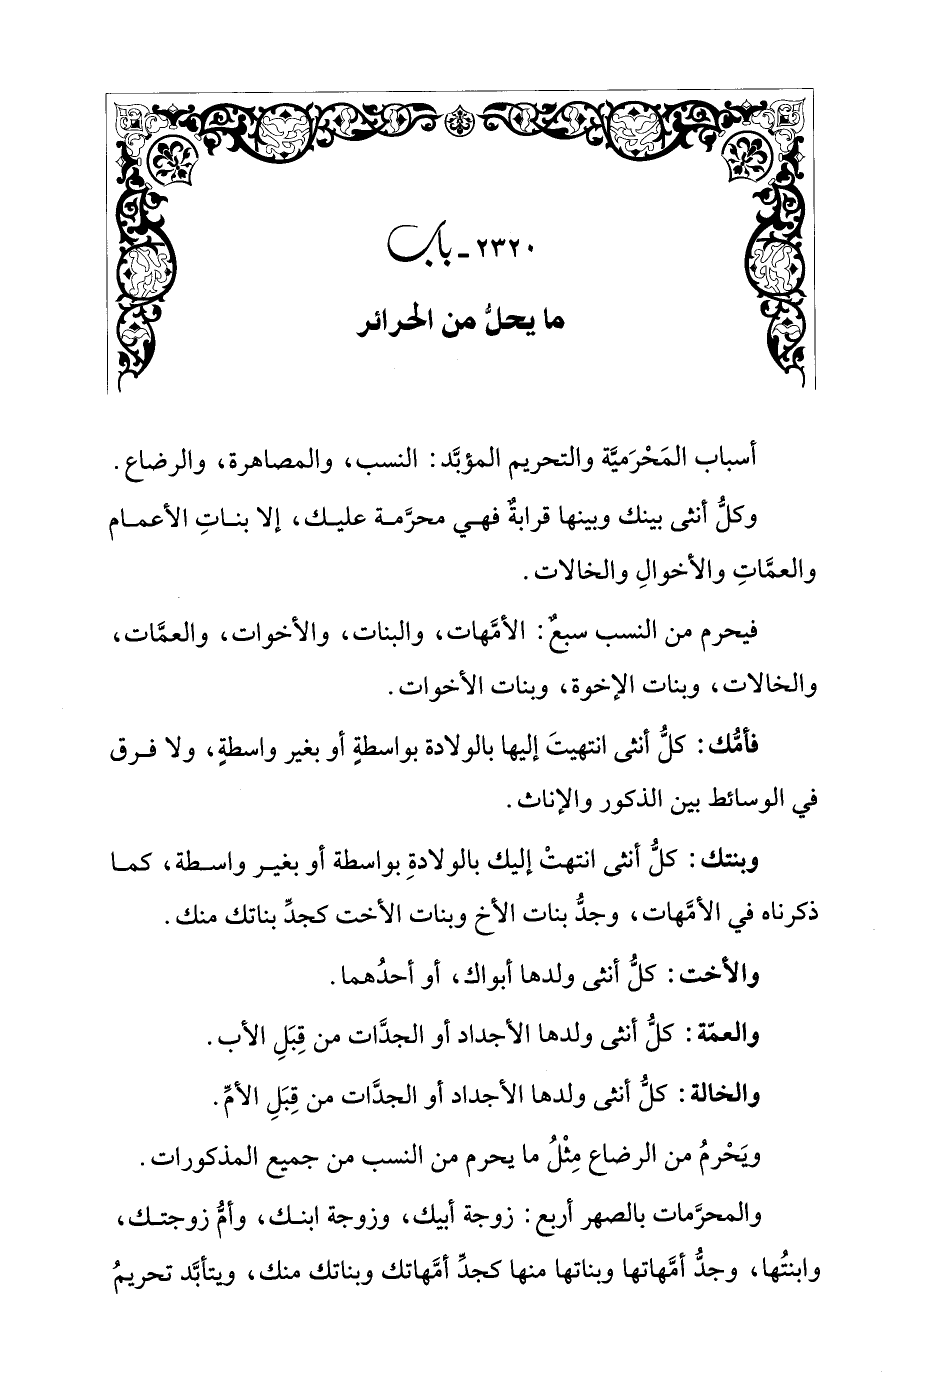 ٢٣٢٠ ـ باب
ما يحلُّ من الحرائر
أسباب المَحْرَميَّة والتحريم المؤبَّد: النسب، والمصاهرة، والرضاع.
وكلُّ أنثى بينك وبينها قرابةٌ فهي محرَّمة عليك، إلا بناتِ الأعمام
والعمَّاتِ والأخوالِ والخالات.
فيحرم من النسب سبعٌ: الأمَّهات، والبنات، والأخوات، والعمَّات،
والخالات، وبنات الإخوة، وبنات الأخوات.
فأمُّك: كلُّ أنثى انتهيتَ إليها بالولادة بواسطةٍ أو بغير واسطةٍ، ولا فرق
في الوسائط بين الذكور والإناث.
وبنتك: كلُّ أنثى انتهتْ إليك بالولادةِ بواسطة أو بغير واسطة، كما
ذكرناه في الأمَّهات، وجدُّ بنات الأخ وبنات الأخت كجدِّ بناتك منك.
والأخت: كلُّ أنثى ولدها أبواك، أو أحدُهما.
والعمّة: كلُّ أنثى ولدها الأجداد أو الجدَّات من قِبَلِ الأب.
والخالة: كلُّ أنثى ولدها الأجداد أو الجدَّات من قِبَلِ الأمِّ.
ويَحْرمُ من الرضاع مِثْلُ ما يحرم من النسب من جميع المذكورات.
والمحرَّمات بالصهر أربع: زوجة أبيك، وزوجة ابنك، وأمُّ زوجتك،
وابنتُها، وجدُّ أمَّهاتها وبناتها منها كجدِّ أمَّهاتك وبناتك منك، ويتأبَّد تحريمُ